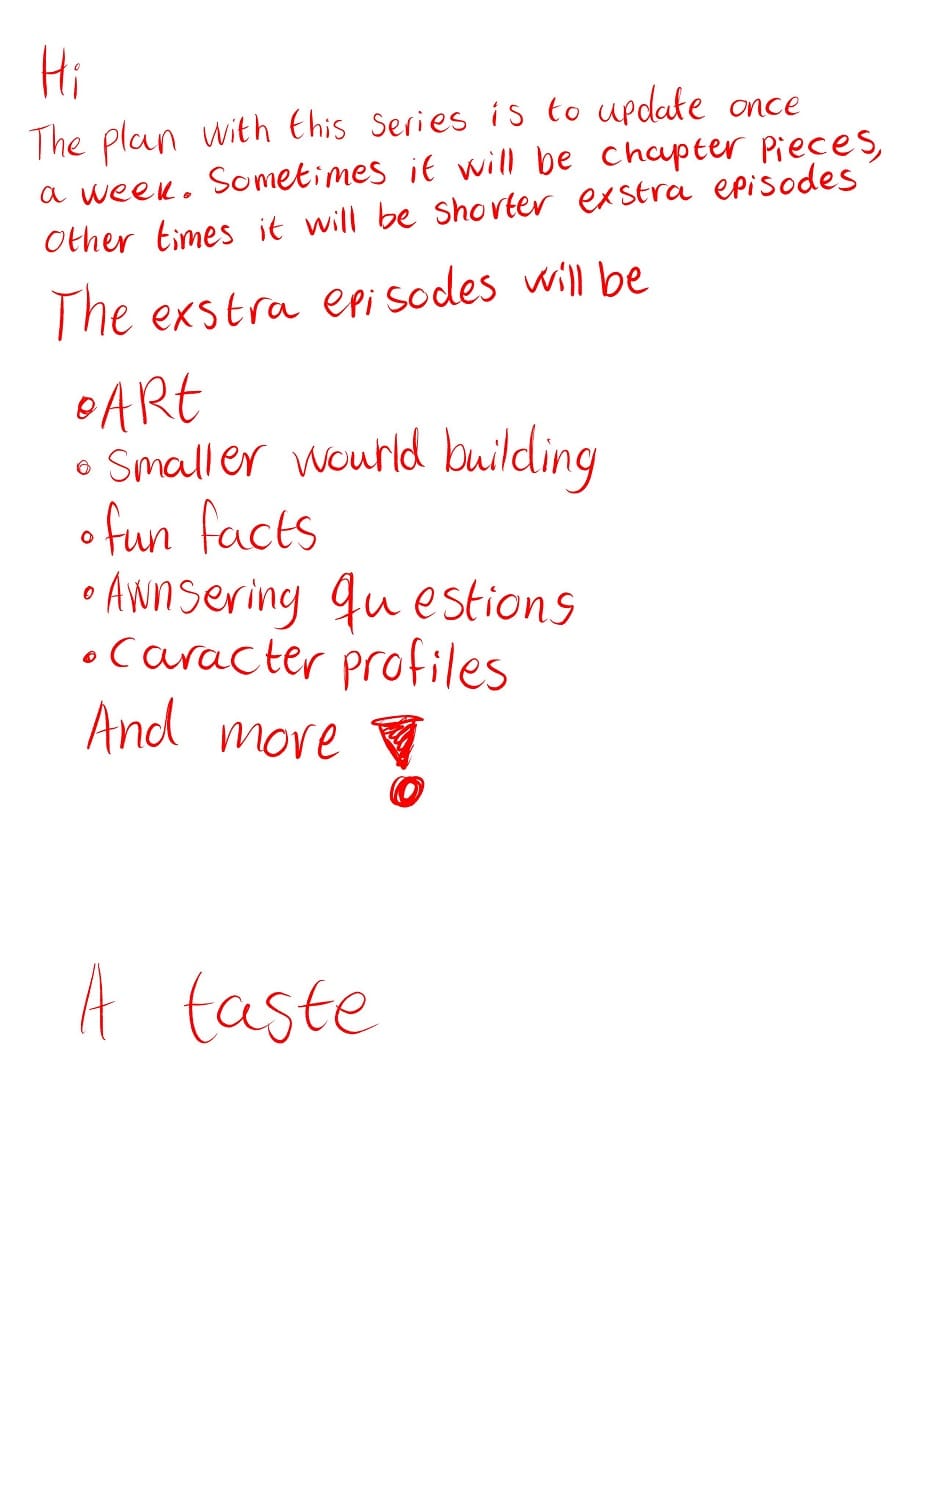 Hi
The plan with this series is to update once
a week. Sometimes it will be chapter pieces,
other times it will be shorter exstra episodes
The exstra episodes will be
• ARt
• Smaller wourld building
• fun facts
• Awnsering questions
• Caracter profiles
And more !
A taste